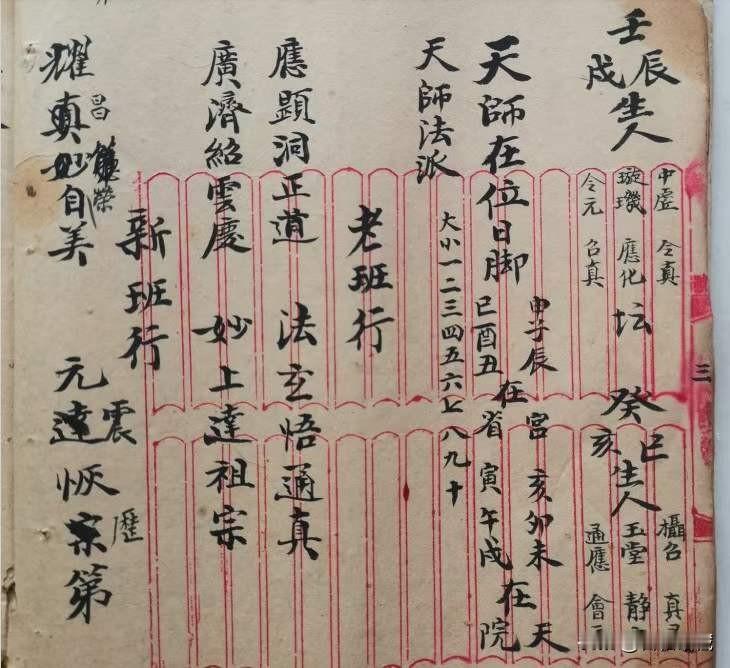 壬辰
戌生人
中虛 令真
璇璣 應化
令元 召真
坛
癸巳
亥生人
攝召 真
玉堂 靜
通應 會
天師在位日脚
申子辰在宮 亥卯未在天
巳酉丑在省 寅午戌在院
天師法派
大小一二三四五六七八九十
老班行
應顕洞正道 法玄悟通真
廣濟紹雲慶 妙上達祖宗
新班行
耀真妙自美 元達恢宗第
昌 榮 震 歷
三